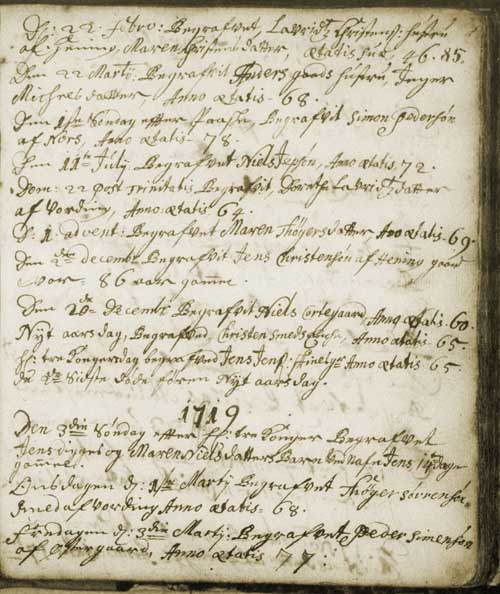 D: 22. febro: Begrafvet, Lavridtz Christens: hustru
af Hening, Maren Christensdatter, ætatis suæ, 46. 85.
Den 22 Martij. Begrafvit Anders hustru, Inger
Michelsdatter, Anno ætatis. 68.
Den 1ste Søndag effter Paaske, Begrafvit Simon Pedersøn
af Nors, Anno ætatis. 78.
Den 11te July. Begrafvet Niels Jepsøn, Anno ætatis. 72.
Dom: 22 post trinitatis Begrafvit, Dorothe Lavridtzdatter
af Vording, Anno: ætatis 64.
D: 1. advent: Begrafvet Maren Thøgersdatter, Ano ætatis. 69.
Den decembr. Begrafvit Jens Christensøn af Hening
vor. 86 aar gamel.
Den 20de Decembr Begrafvit Niels Anno ætatis. 60.
Nyt aarsdag, Begrafved, Christen Anno ætatis 65.
h: tre Kongersdag begrafved Jens Jens: Anno ætatis 65
de Sidste døde føren Nyt aarsdag.
1719
Den 3die Søndag effter h: tre Konger Begrafvet
Jens og Maren Nielsdatters Barn ved Nafn Jens 14 dage
gammel.
Onsdagen d: 1ste Martij Begrafvet Thøger Sørrensøn
Smed af Vording Anno ætatis. 68.
d: 3die Martij: Begrafvet Peder Simensøn
af Øster gaard, Anno ætatis 77.